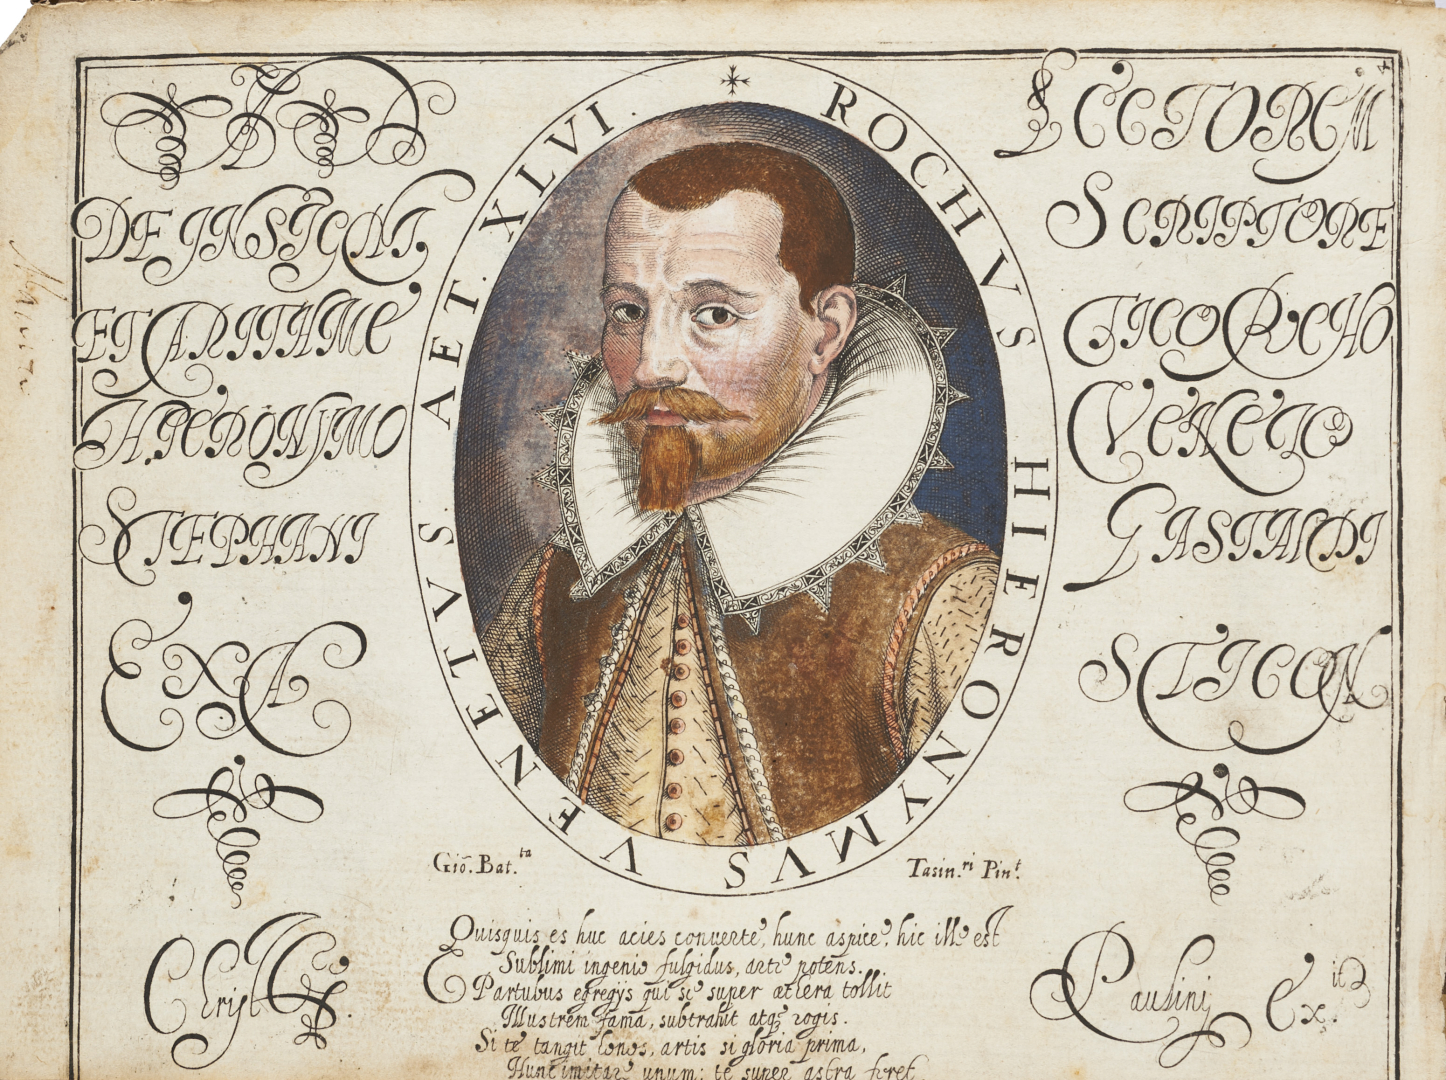 AD LECTOREM
DE INSIGNI SCRIPTORE
ET ARITHME TICO ROCHO
HIERONYMO VENETO
STEPHANI GASTALDI
EXA STICON
ROCHVS HIERONYMVS VENETVS. AET. XLVI.
Gio. Bat.ta Tasin.ri Pin.t
Quisquis es huc acies conuerte, hunc aspice, hic ille est
Sublimi ingenio fulgidus, arte potens.
E Partubus egregijs qui se super aethera tollit
Illustrem fama, subtrahit atq; rogis.
Si te tangit honos, artis si gloria prima,
Hunc imitare unum: te super astra feret.
Paulinj Ex.it